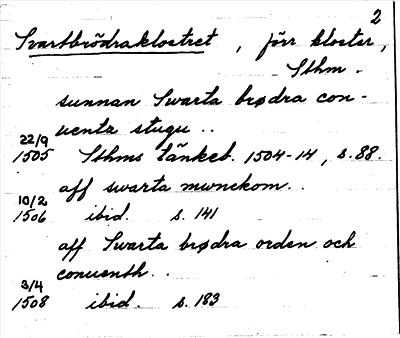 2
Svartbrödraklostret, förr kloster,
Sthm.
sunnan Swarta brødra con-
uenta stugu..
22/9
1505 Sthms tänkeb. 1504-14, s. 88.
aff swarta mwnckom..
10/2
1506 ibid. s. 141
aff Swarta brødra orden och
conuenth..
3/4
1508 ibid. s. 183